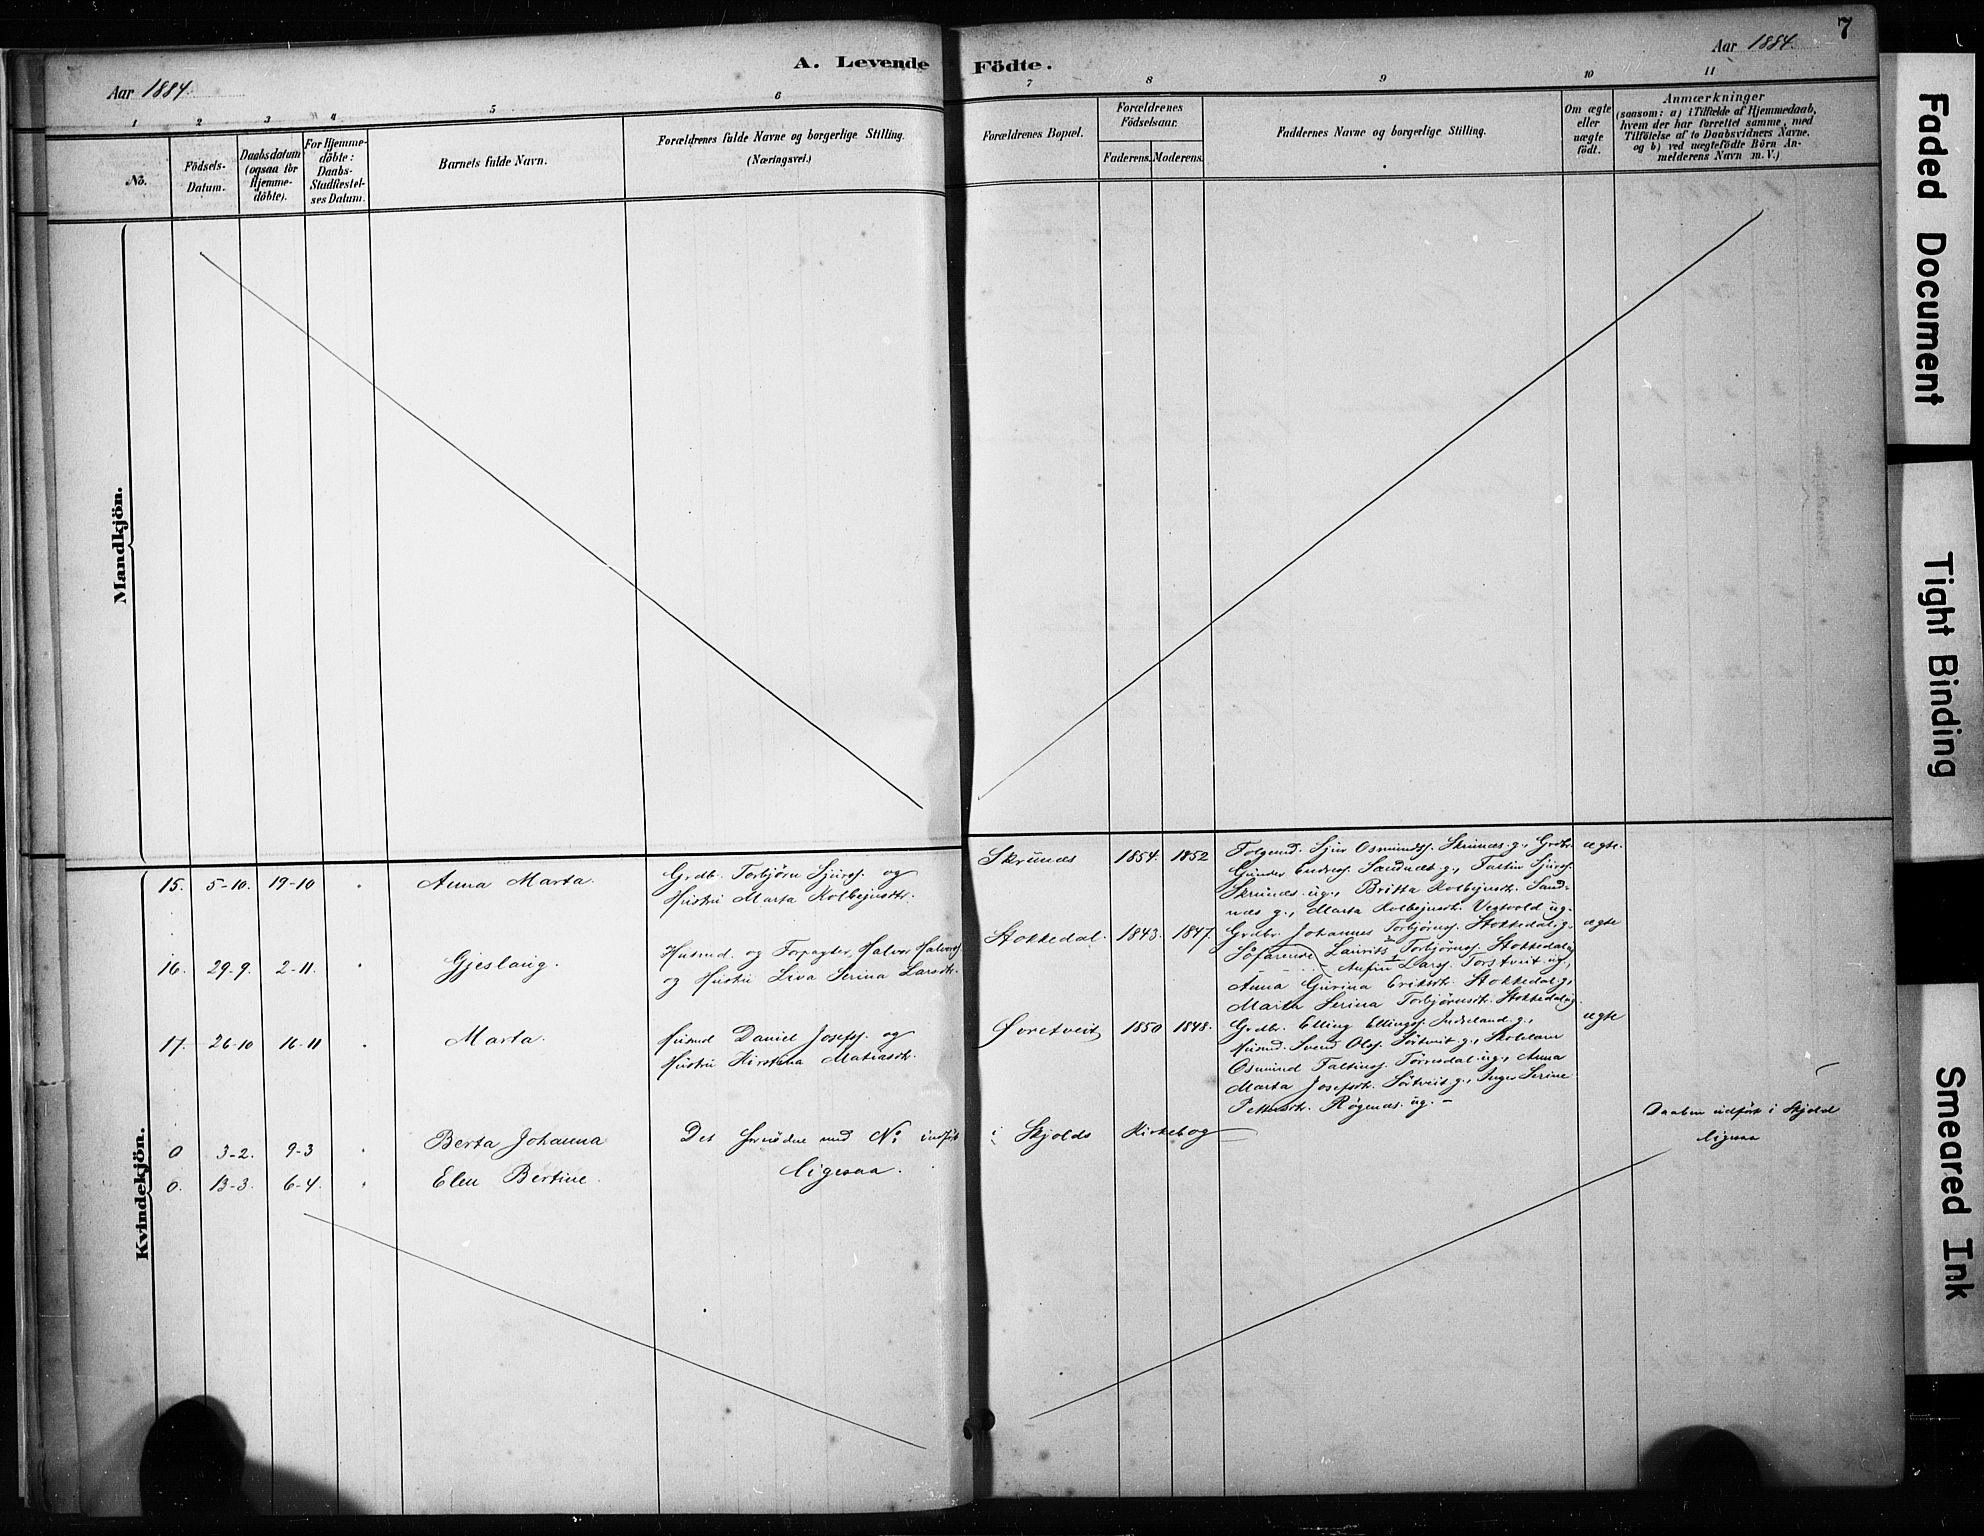 7
A. Levende Födte.
Aar 1884.
Aar 1884.
1 2 3 4 5 6 7 8 9 10 11
No.
Födsels-
Datum.
Daabsdatum
(ogsaa for
Hjemme-
döbte).
For Hjemme-
döbte:
Daabs-
Stadfæstel-
ses Datum.
Barnets fulde Navn.
Forældrenes fulde Navne og borgerlige Stilling.
(Næringsvei.)
Forældrenes Bopæl.
Forældrenes
Födselsaar.
Faderens. Moderens.
Faddernes Navne og borgerlige Stilling.
Om ægte
eller
uægte
födt.
Anmærkninger
(saasom: a) i Tilfælde af Hjemmedaab,
hvem der har forrettet samme, med
Tilföielse af to Daabsvidners Navne,
og b) ved uægtefödte Börn An-
melderens Navn m. V.)
Mandkjön.
Kvindekjön.
15. 5-10. 19-10 Anna Marta.
Grdb. Torbjörn Sjurs. og
Hustru Marta Kolbejnsdtr.
Skrunæs 1854. 1852
Folgemd. Sjur Osmunds. Skrunæs g., Grdbr.
Gunder Endres. Sandnæs g., Faltin Sjurs.
Skrunæs ug., Britta Kolbejnsdtr. Sand-
næs g., Marta Kolbejnsdtr. Vestvold ug.
ægte.
16. 29-9. 2-11. Gjeslaug.
Husmd. og Forpagter Halvor Halvors.
og Hustru Liva Serina Larsdtr.
Stokkedal. 1843. 1847.
Grdbr. Johannes Torbjörns. Stokkedal g.
Söfarende Laurits Torbjörns. Stokkedal ug
Anfin Lars. Torstveit ug.,
Anna Gurina Eriksdtr. Stokkedal g.,
Marta Serina Torbjörnsdtr. Stokkedal ug.
ægte
17. 26-10 16-11 Marta.
Husmd Daniel Josefs. og
Hustru Kirstina Matiasdtr.
Øvretveit 1850 1848.
Grdbr. Elling Ellings. Indreland g.,
Husmd. Svend Ols. Sörtveit g.,
Osmund Faltins. Tørresdal ug., Anna
Marta Josefsdtr. Sörtveit g., Inger Serine
Pettersdtr. Røgenæs ug. –
ægte
0 3-2. 9-3 Berta Johanna
Det fornödne med No indfört i Skjolds Kirkebog
Daaben udfört i Skjold
ligesaa
0. 13-3. 6-4. Elen Bertine.
ligesaa.
Faded Document
Tight Binding
Smeared Ink